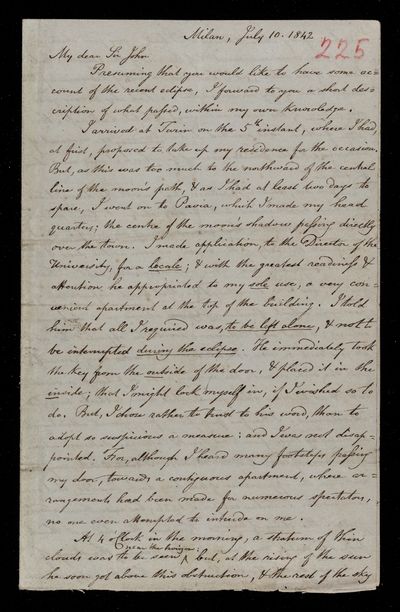 Milan, July 10. 1842
225
My dear Sir John
Presuming that you would like to have some ac=
count of the recent eclipse, I forward to you a short des=
cription of what passed, within my own knowledge.
I arrived at Turin on the 5th instant, where I had,
at first, proposed to take up my residence for the occasion.
But, as this was too much to the northward of the central
line of the moon's path, & as I had at least two days to
spare, I went on to Pavia, which I made my head
quarters; the centre of the moon's shadow passing directly
over the town. I made application, to the Director of the
University, for a locale; & with the greatest readiness &
attention he appropriated to my sole use, a very con=
venient apartment at the top of the building. I told
him that all I required was, to be left alone, & not to
be interrupted during the eclipse. He immediately took
the key from the outside of the door, & placed it in the
inside; that I might lock myself in, if I wished so to
do. But, I chose rather to trust to his word, than to
adopt so suspicious a measure: and I was not disap=
pointed. For, although I heard many footsteps passing
my door, towards a contiguous apartment, where ar=
rangements had been made for numerous spectators,
no one even attempted to intrude on me.
At 4 o'Clock in the morning, a stratum of thin
near the horizon:
clouds was to be seen but, at the rising of the sun
he soon got above this obstruction, & the rest of the sky